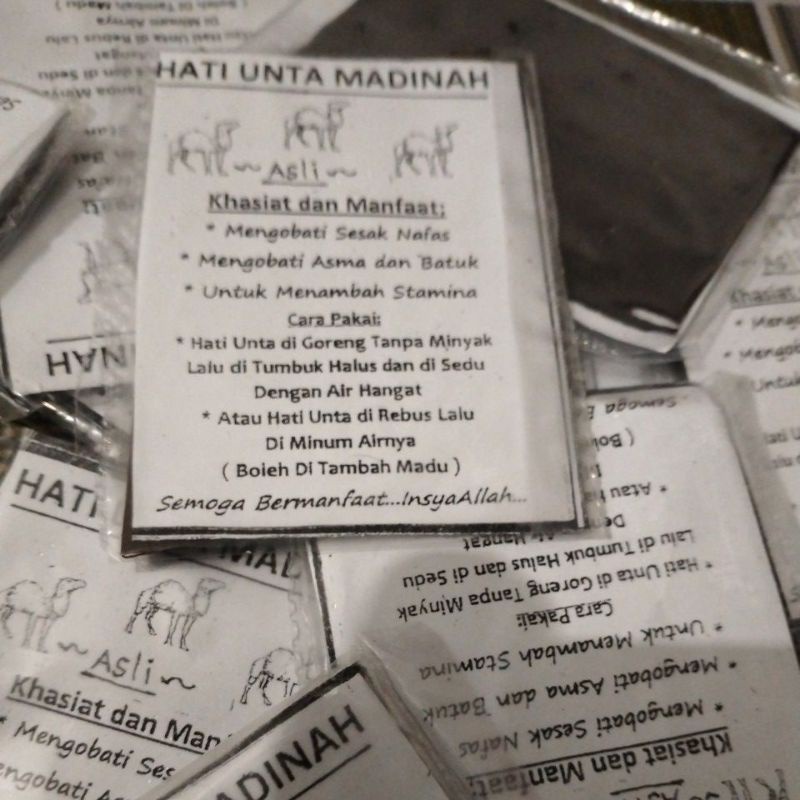 HATI UNTA MADINAH
~ Asli ~
Khasiat dan Manfaat;
* Mengobati Sesak Nafas
* Mengobati Asma dan Batuk
* Untuk Menambah Stamina
Cara Pakai:
* Hati Unta di Goreng Tanpa Minyak
Lalu di Tumbuk Halus dan di Sedu
Dengan Air Hangat
* Atau Hati Unta di Rebus Lalu
Di Minum Airnya
( Boleh Di Tambah Madu )
Semoga Bermanfaat...InsyaAllah...
HATI
~ Asli ~
Khasiat dan Man
* Mengobati Ses
ADINAH
Khasiat dan Manfaat;
* Mengobati Sesak Nafas
* Mengobati Asma dan Batuk
* Untuk Menambah Stamina
Cara Pakai:
* Hati Unta di Goreng Tanpa Minyak
Lalu di Tumbuk Halus dan di Sedu
Hangat
* Atau
Semoga